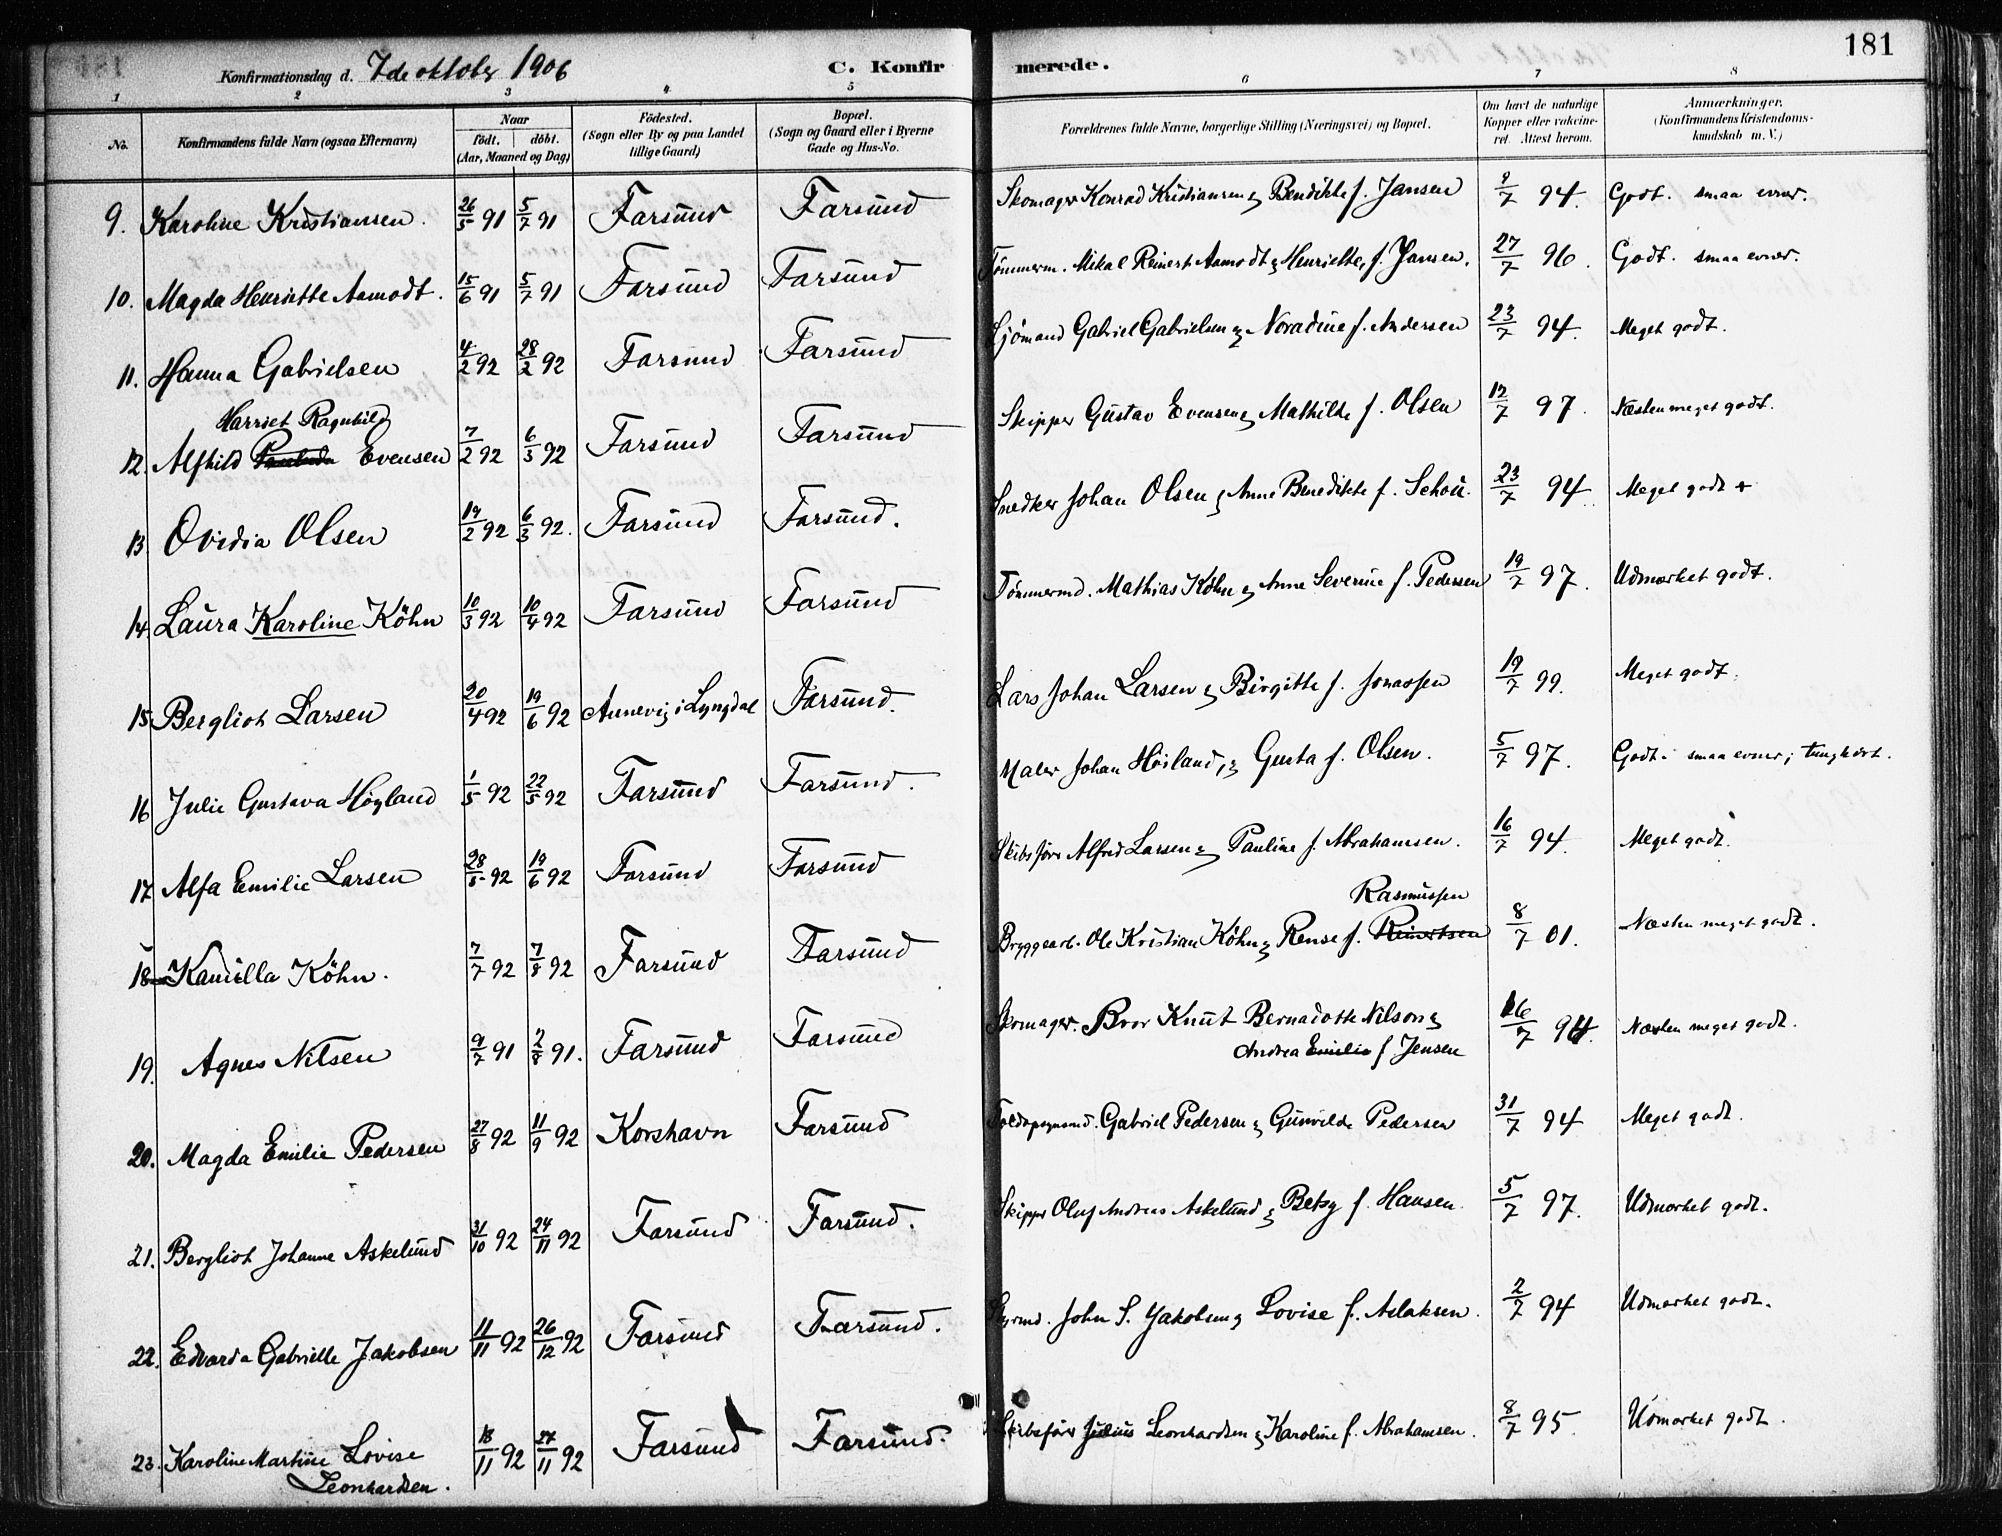 181
Konfirmationsdag d. 7de oktober 1906 C. Konfirmerede.
1 2 3 4 5 6 7 8
No. Konfirmandens fulde Navn (ogsaa Efternavn) Naar født. døbt. (Aar, Maaned og Dag) Fødested. (Sogn eller By og paa Landet tillige Gaard) Bopæl. (Sogn og Gaard eller i Byerne Gade og Hus-No. Forældrenes fulde Navne, borgerlige Stilling (Næringsvei) og Bopæl. Om havt de naturlige Kopper eller vakcineret. Attest herom. Anmærkninger. (Konfirmandens Kristendomskundskab m. V.)
9. Karoline Kristiansen. 26/5 91 5/7 91 Farsund Farsund Skomager Konrad Kristiansen & Bendikte f. Jansen 9/7 94. Godt. smaa evner.
10. Magda Henriette Aamodt. 15/6 91 5/7 91 Farsund Farsund Tømmerm. Mikal Reinert Aamodt & Henriette, f. Jansen. 27/7 96. Godt. smaa evner.
11. Hanna Gabrielsen 4/2 92 28/2 92 Farsund Farsund Sjømand Gabriel Gabrielsen & Noradine f. Andersen 23/7 94. Meget godt.
Harriet Ragnhild
12. Alfhild Evensen 7/2 92 6/3 92 Farsund Farsund Skipper Gustav Evensen & Mathilde f. Olsen 12/7 97. Næsten meget godt.
13. Ovidia Olsen 19/2 92 6/3 92. Farsund Farsund. Snedker Johan Olsen & Anne Benedikte f. Schou. 23/7 94. Meget godt +
14. Laura Karoline Köhn 10/3 92 10/4 92 Farsund Farsund Tømmermd. Mathias Köhn & Anne Severine f. Pedersen 19/7 97. Udmærket godt.
15. Bergliot Larsen 20/4 92 19/6 92 Annevig i Lyngdal Farsund. Lars Johan Larsen & Birgitte f. Jonassen 19/7 99. Meget godt.
16 Julie Gustava Høyland 1/5 92 22/5 92 Farsund Farsund. Maler Johan Höiland, & Gusta f. Olsen. 5/7 97. Godt. smaa evner; tunghørt.
17. Alfa Emilie Larsen 28/5 92 19/6 92 Farsund Farsund Skibsfører Alfred Larsen & Pauline f. Abrahamsen. 16/7 94. Meget godt.
Rasmussen
18 Kamilla Köhn. 7/7 92 7/8 92 Farsund Farsund Bryggearb. Ole Kristian Köhn & Rense f. Reinertsen 8/7 01. Næsten meget godt.
19. Agnes Nilsen 9/7 91 2/8 91. Farsund Farsund Skomager. Bror Knut Bernadotte Nilson & 16/7 94. Næsten meget godt.
Andrea Emilie f Jensen
20. Magda Emilie Pedersen 27/8 92 11/9 92 Korshavn Farsund Toldopsynsmd. Gabriel Pedersen & Gunvilde Pedersen 31/7 94 Meget godt.
21. Bergliot Johanne Askelund 31/10 92 24/11 92 Farsund Farsund. Skipper Oluf Andreas Askelund & Betsy f. Hansen. 5/7 97. Udmærket godt.
22. Edvarda Gabrielle Jakobsen 11/11 92 26/12 92 Farsund Farsund. Styrmd. John S. Jakobsen & Lovise f. Aslaksen. 2/7 94 Udmærket godt.
23. Karoline Martine Lovise 18/11 92 27/11 92 Farsund Farsund. Skibsfører Julius Leonhardsen & Karoline f. Abrahamsen. 8/7 95. Udmærket godt.
Leonhardsen.